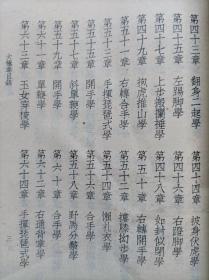 第四十三章 翻身二起學 第四十四章 披身伏虎學
第四十五章 左踢脚學 第四十六章 右蹬脚學
第四十七章 上步搬攔捶學 第四十八章 如封似閉學
第四十九章 抱虎推山學 第五十章 右轉開手學
第五十一章 右轉合手學 第五十二章 摟膝拗步學
第五十三章 手揮琵琶式學 第五十四章 懶扎衣學
第五十五章 開手學 第五十六章 合手學
第五十七章 斜單鞭學 第五十八章 野馬分鬃學
第五十九章 開手學 第六十章 合手學
第六十一章 單鞭學 第六十二章 右通背掌學
第六十三章 玉女穿梭學 第六十四章 手揮琵琶式學
太極拳目錄